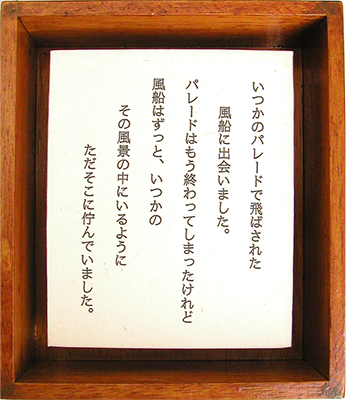 いつかのパレードで飛ばされた
風船に出会いました。
パレードはもう終わってしまったけれど
風船はずっと、いつかの
その風景の中にいるように
ただそこに佇んでいました。